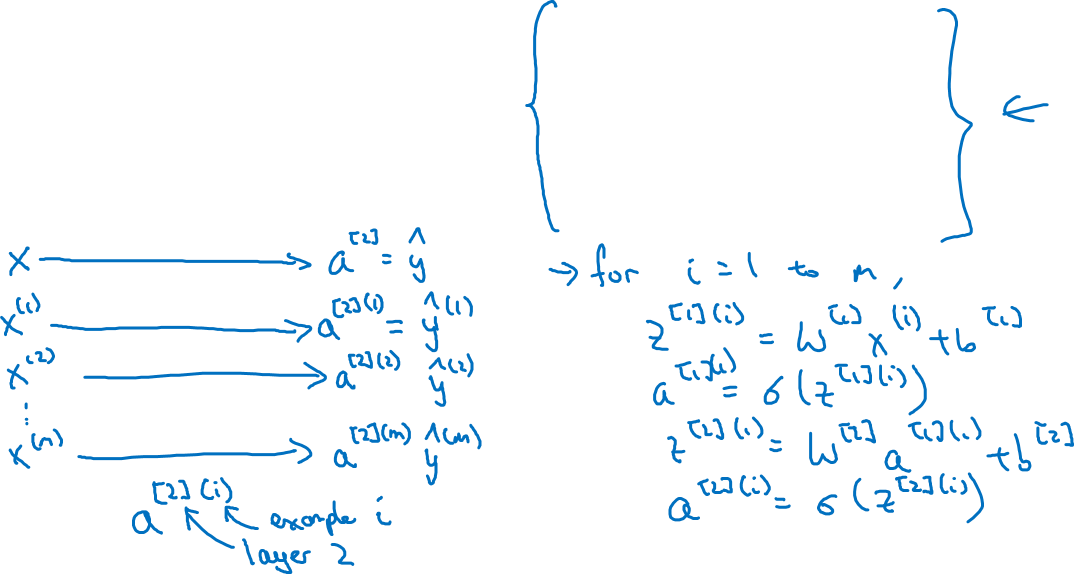 x → a^[2] = ŷ
x^(1) → a^[2](1) = ŷ^(1)
x^(2) → a^[2](2) ŷ^(2)
⋮
x^(m) → a^[2](m) ŷ^(m)
a^[2](i)
example i
layer 2
{ } ←
→ for i = 1 to m,
z^[1](i) = W^[1] x^(i) + b^[1]
a^[1](i) = σ(z^[1](i))
z^[2](i) = W^[2] a^[1](i) + b^[2]
a^[2](i) = σ(z^[2](i))